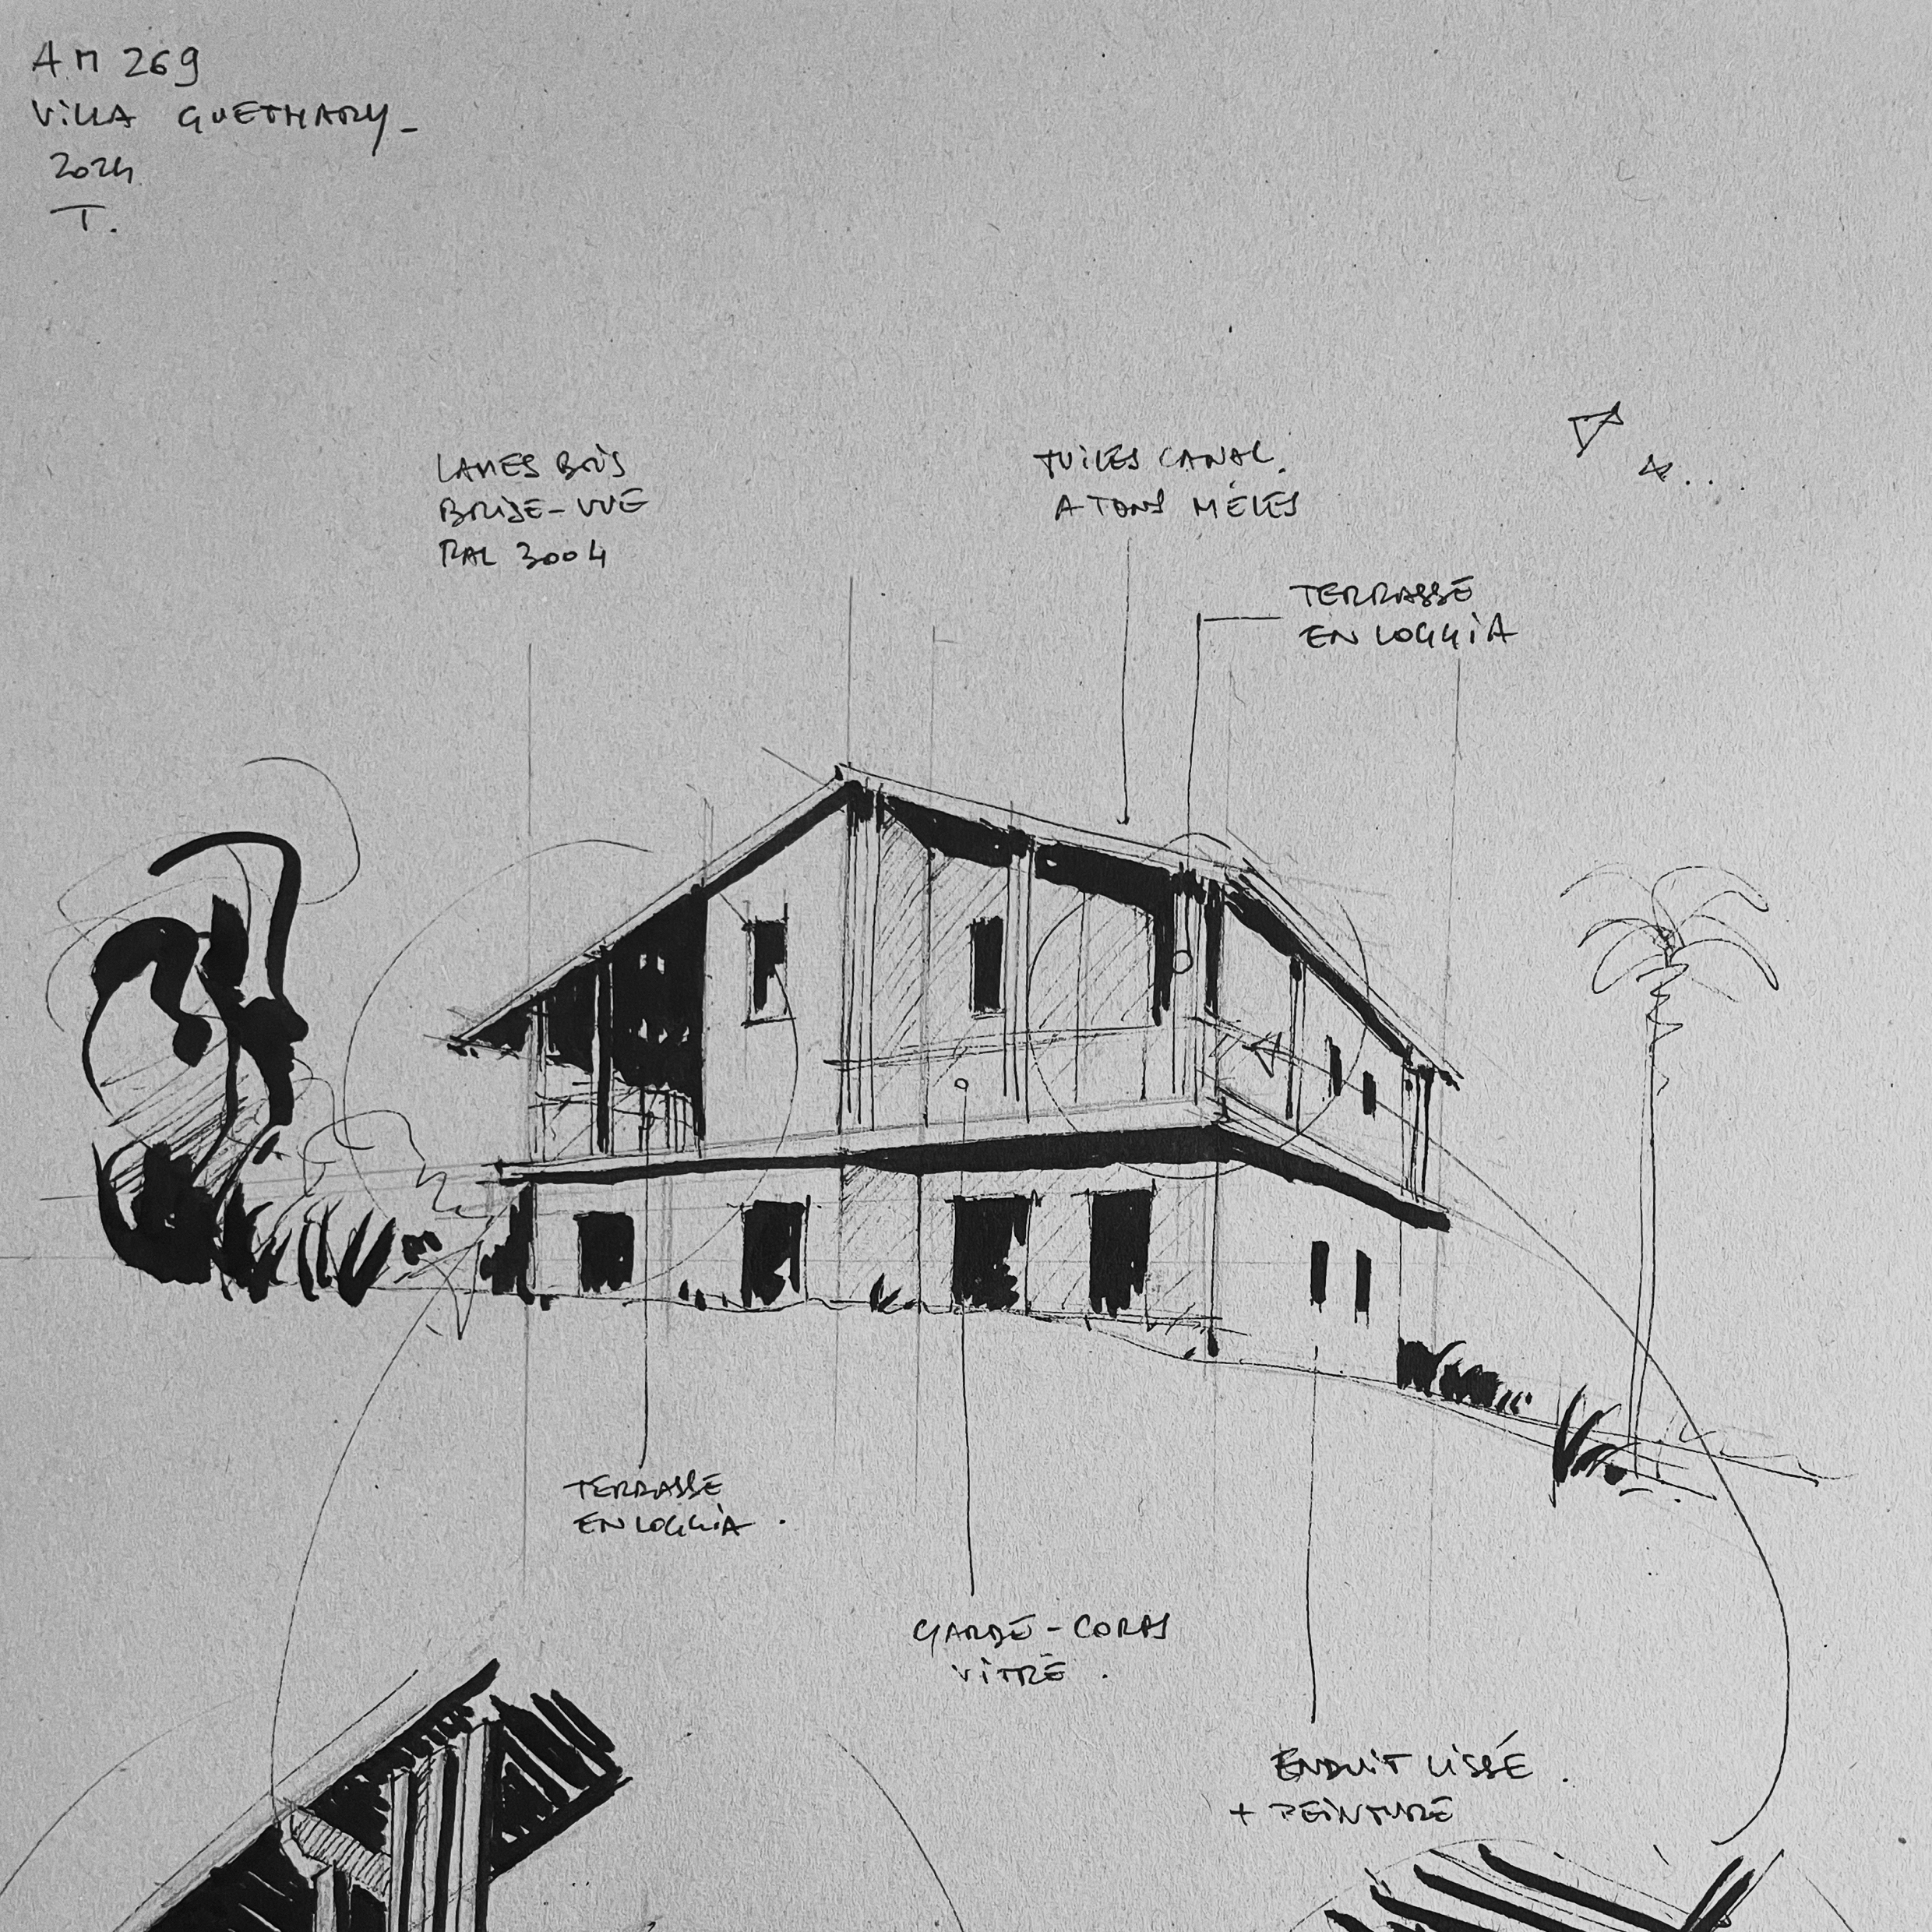 AM 269
VILLA GUETHARY_
2024
T.
LAMES BOIS
BRISE-VUE
RAL 3004
TUILES CANAL.
A TONS MÊLÉS
TERRASSE
EN LOGGIA
TERRASSE
EN LOGGIA .
GARDE-CORPS
VITRÉ .
ENDUIT LISSÉ .
+ PEINTURE